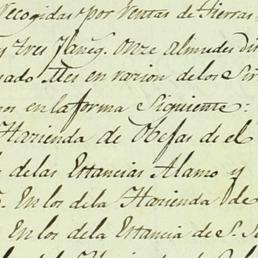 Recogidas por Ventas de Tierras
y tres faneg. Onze Almudes
Mes en razon de los
en la forma Siguiente:
Hacienda de Obejas de el
de las Estancias Alamo y
En los de la Hacienda de
En los de la Estancia de S.